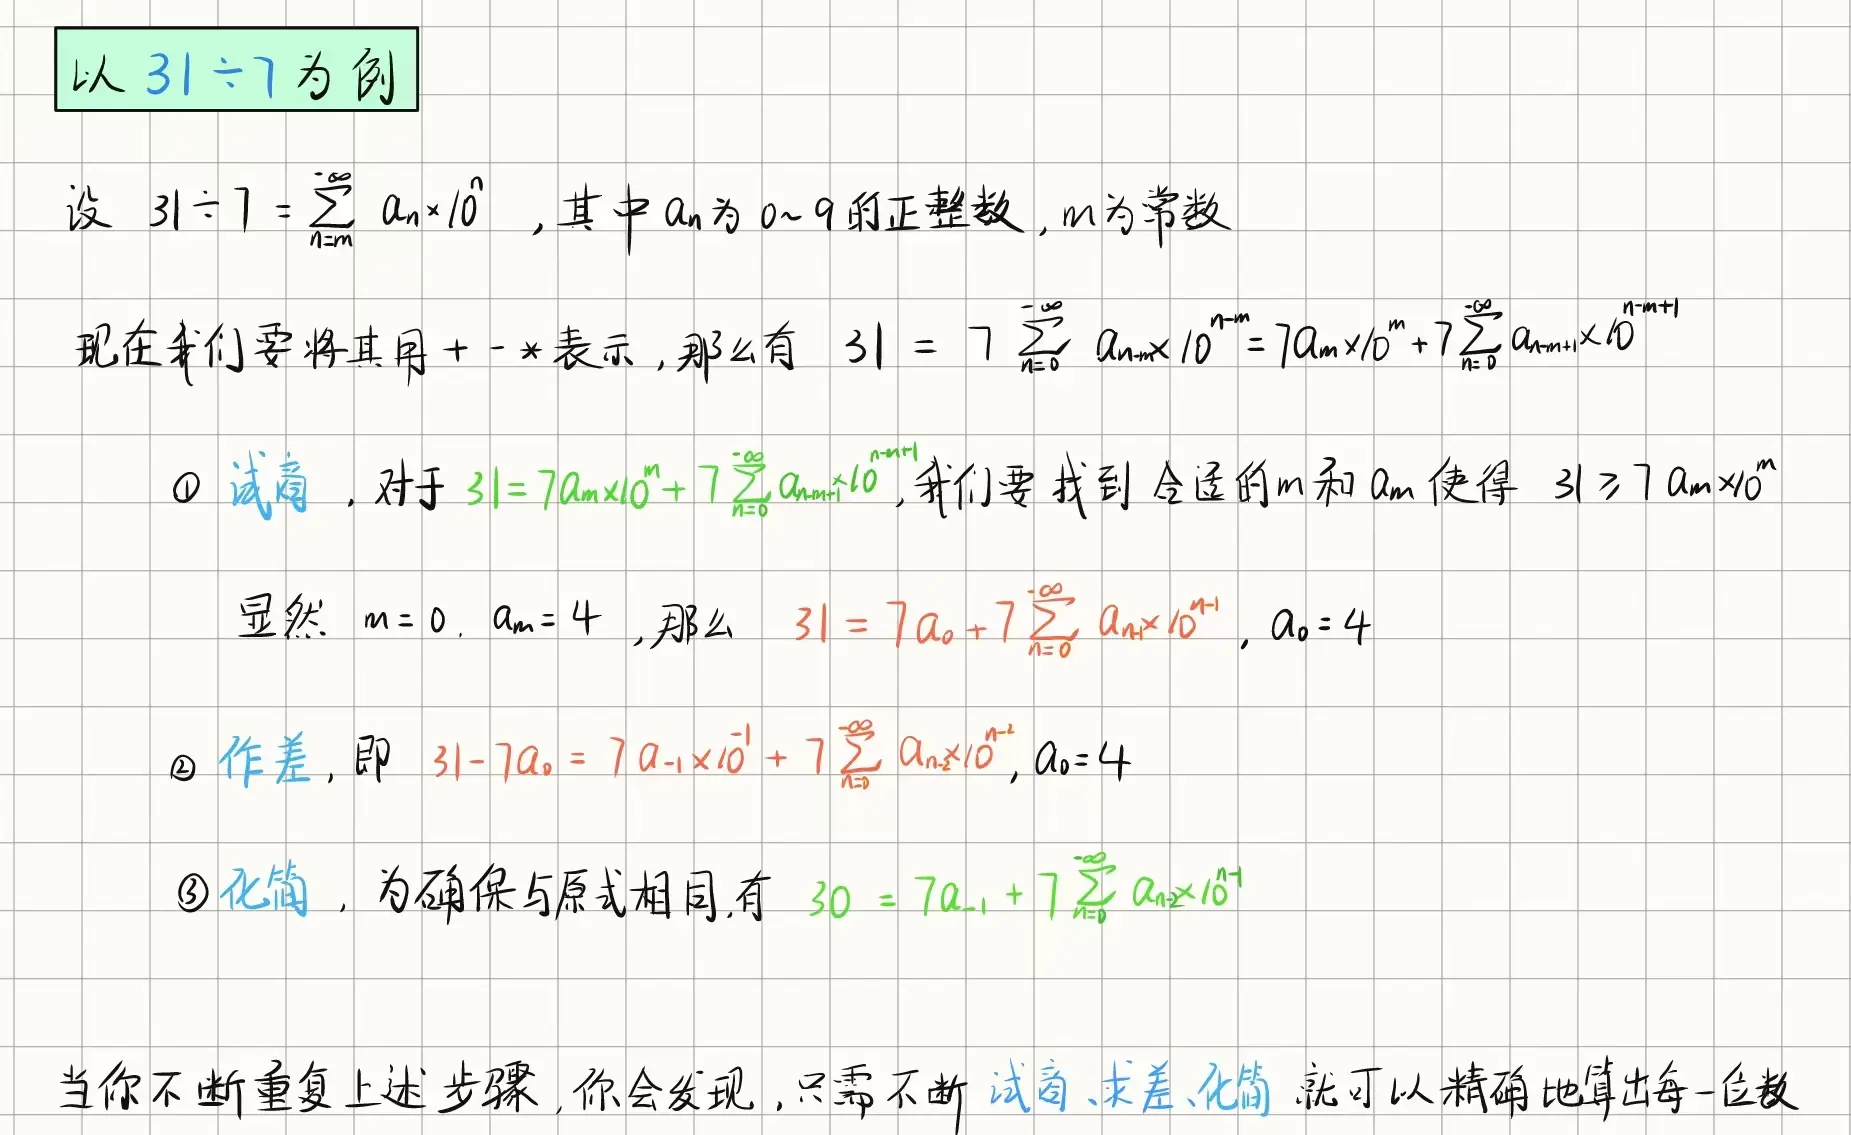 以 31÷7 为例
设 31÷7 = \sum_{n=m}^{-∞} a_n×10^n ,其中 a_n 为 0~9 的正整数, m为常数
现在我们要将其用 + - * 表示,那么有 31 = 7 \sum_{n=0}^{-∞} a_{n-m}×10^{n-m} = 7a_m×10^m + 7\sum_{n=0}^{-∞} a_{n-m+1}×10^{n-m+1}
① 试商 , 对于 31=7a_m×10^m + 7\sum_{n=0}^{-∞} a_{n-m+1}×10^{n-m+1} ,我们要找到合适的m和a_m 使得 31≥7a_m×10^m
显然 m=0. a_m=4 ,那么 31 = 7a_0 + 7\sum_{n=0}^{-∞} a_{n-1}×10^{n-1} , a_0=4
② 作差, 即 31-7a_0 = 7a_{-1}×10^{-1} + 7\sum_{n=0}^{-∞} a_{n-2}×10^{n-2}, a_0=4
③ 化简 , 为确保与原式相同,有 30 = 7a_{-1} + 7\sum_{n=0}^{-∞} a_{n-2}×10^{n-1}
当你不断重复上述步骤,你会发现,只需不断 试商、求差、化简 就可以精确地算出每一位数